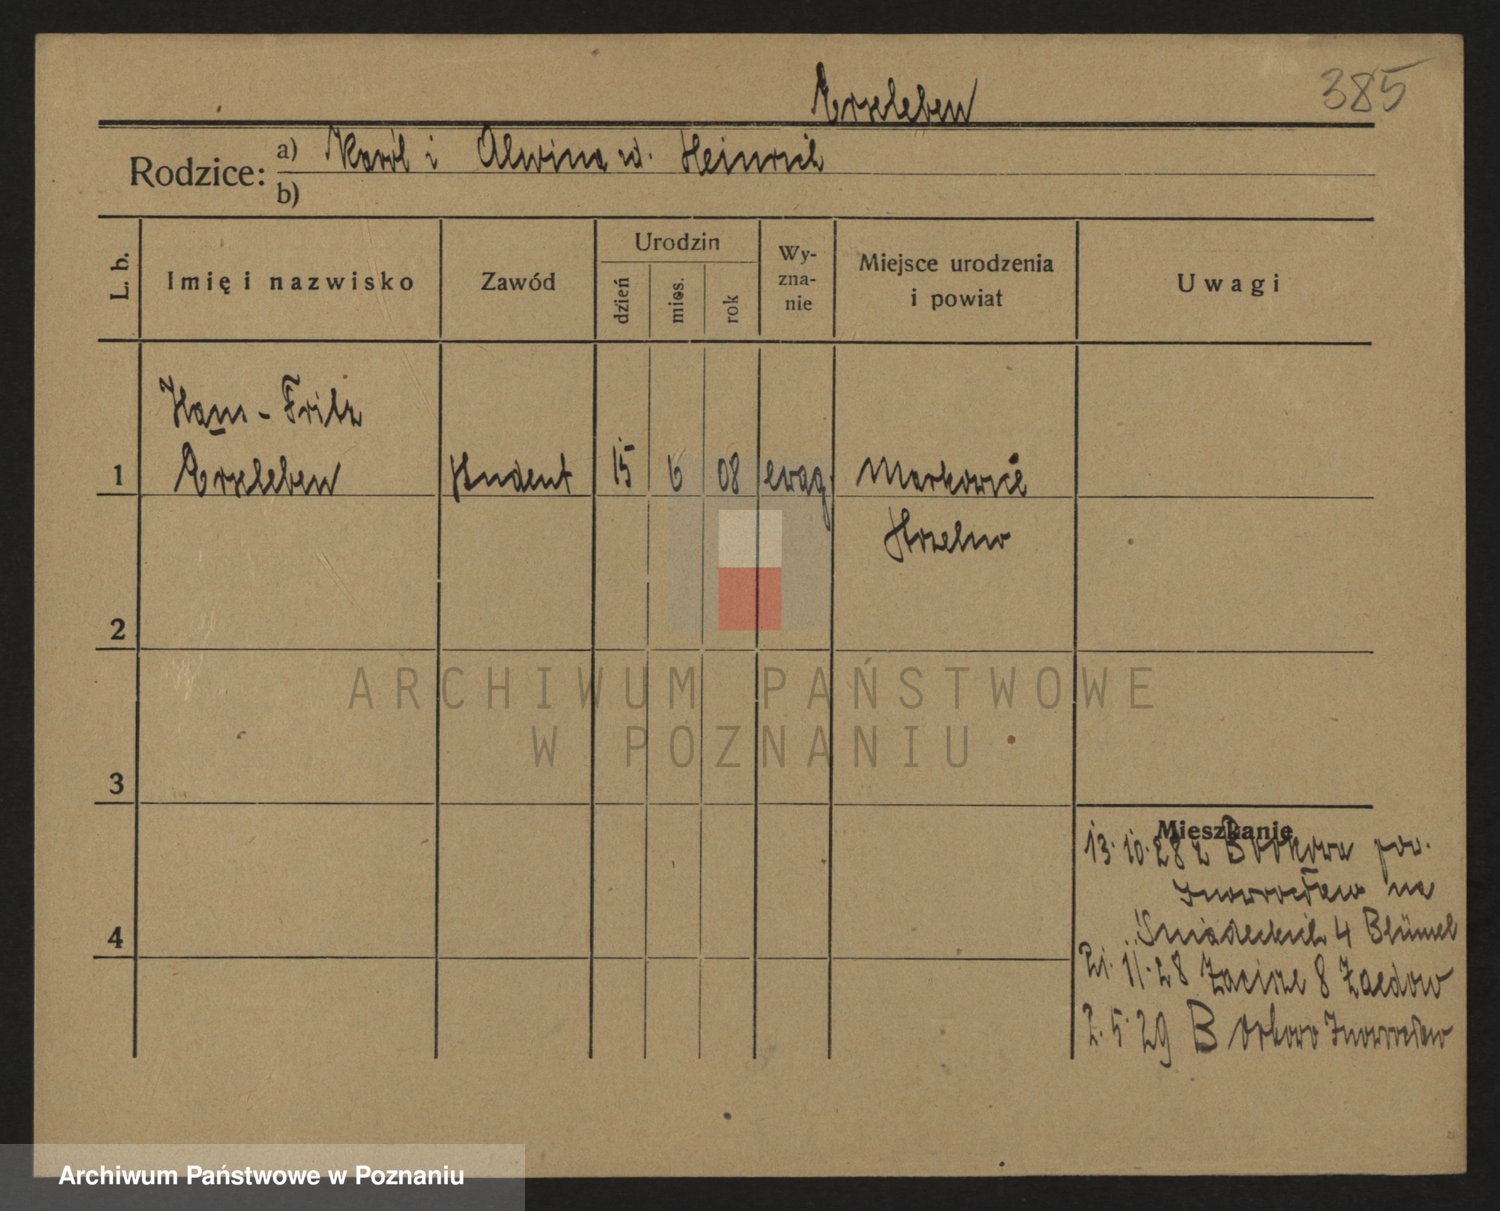 385
Erxleben
Rodzice: a) Karol i Alwina ur. Heinrich
b)
L. b. Imię i nazwisko Zawód Urodzin dzień mies. rok Wy-zna-nie Miejsce urodzenia i powiat Uwagi
Hans - Fritz
1 Erxleben student 15 6 08 ewag. Markowice
Strzelno
2
ARCHIWUM PAŃSTWOWE
W POZNANIU
3
Mieszkanie
13.10.28 z Borkowa pow.
Inowrocław na
4
Śniadeckich 4 Blümel
21.11.28 Zacisze 8
2.5.29 Borkowo Inowrocław
Archiwum Państwowe w Poznaniu